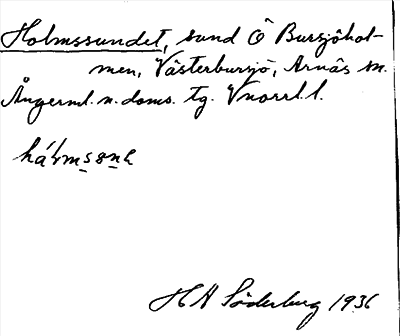 Holmssundet, sund Ö Bursjöhol-
men, Västerbursjö, Arnäs sn.
Ångerml. n. doms. tg. Vnorrl. l.
H A Söderberg 1936